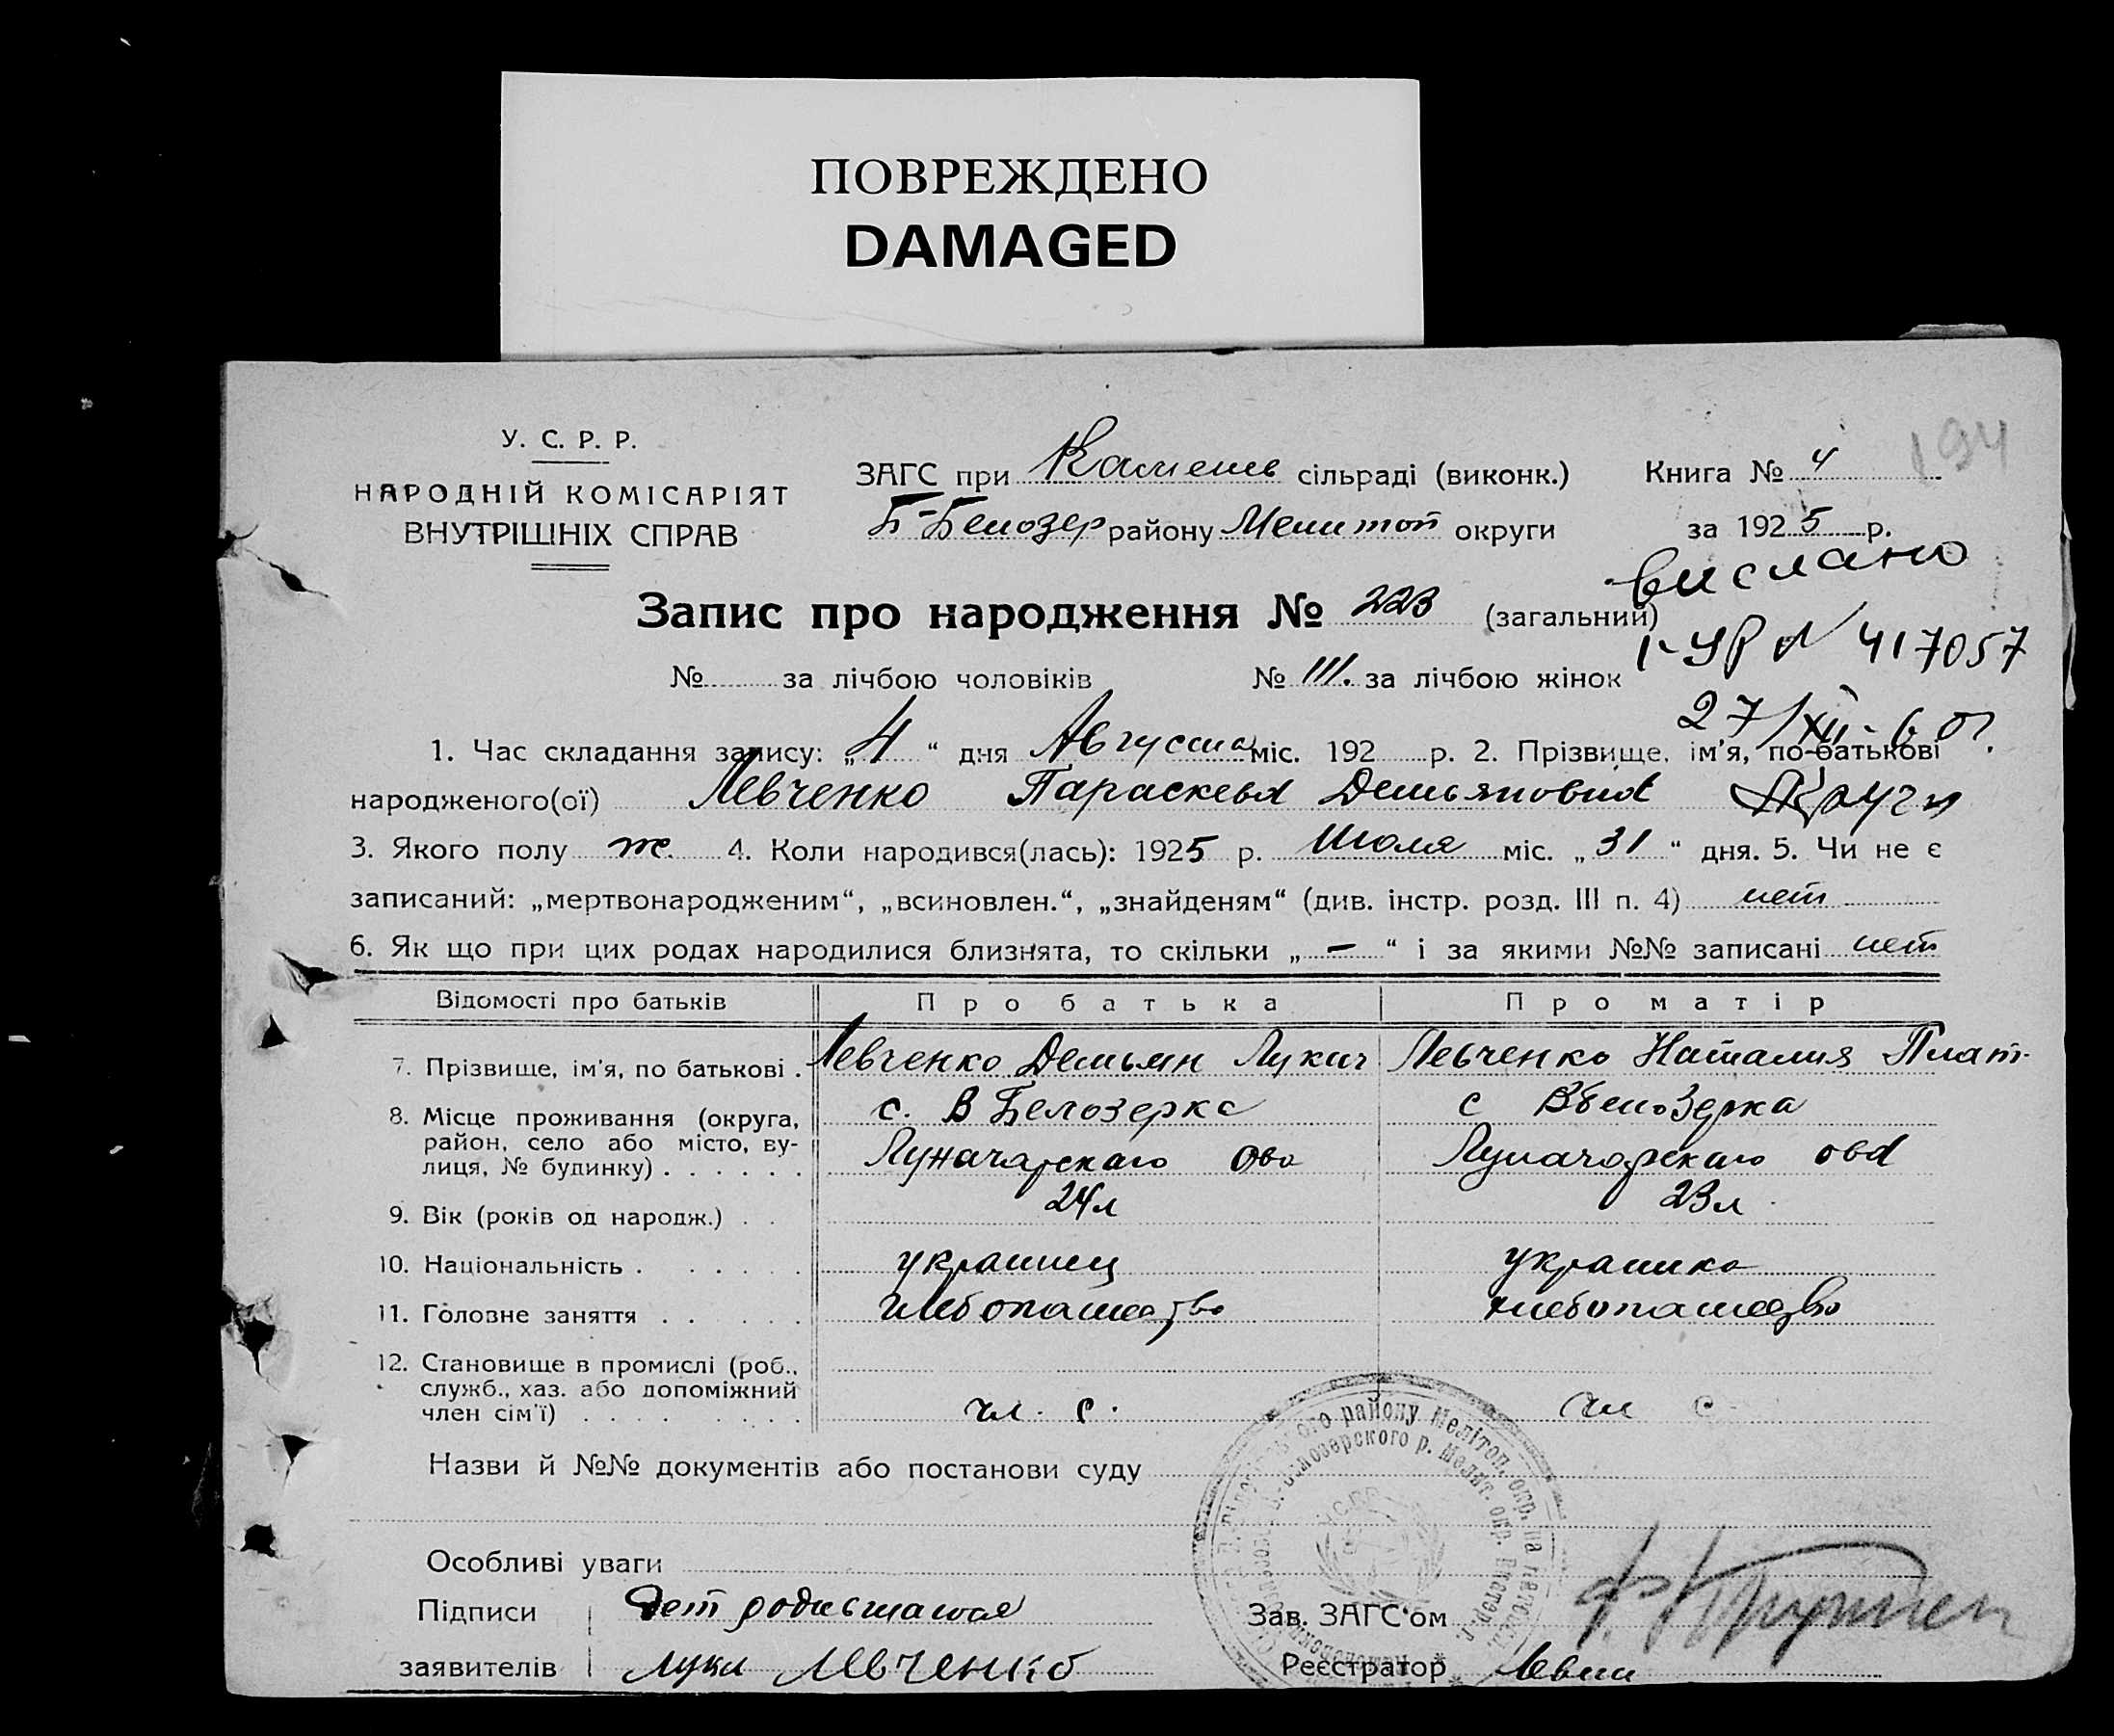 ПОВРЕЖДЕНО
DAMAGED
194
У. С. Р. Р.
НАРОДНІЙ КОМІСАРІЯТ
ВНУТРІШНІХ СПРАВ
ЗАГС при Каменев сільраді (виконк.) Книга № 4
Б-Белозер району Мелитоп округи за 1925 р.
вислано
Запис про народження № 223 (загальний)
417057
№ за лічбою чоловіків № 111. за лічбою жінок
27/XII-60г.
1. Час складання запису: „4“ дня Августа міс. 192 р. 2. Прізвище, ім'я, по-батькові
народженого(ої) Левченко Параскева Демьяновна
3. Якого полу ж. 4. Коли народився(лась): 1925 р. Июля міс. „31“ дня. 5. Чи не є
записаний: „мертвонародженим“, „всиновлен.“, „знайденям“ (див. інстр. розд. III п. 4) нет
6. Як що при цих родах народилися близнята, то скільки „—“ і за якими №№ записані нет
Відомості про батьків Про батька Про матір
7. Прізвище, ім'я, по батькові . Левченко Демьян Лукич Левченко Наталия Плат.
8. Місце проживання (округа, с. ВБелозерка с ВБелозерка
район, село або місто, ву-
лиця, № будинку) . . . . . . Луначарскаго ова Луначарскаго ова
9. Вік (років од народж.) . . 24л 23л
10. Національність . . . . . . украинец украинка
11. Головне заняття . . . . . хлебопашество хлебопашество
12. Становище в промислі (роб.,
служб., хаз. або допоміжний
член сім'ї) . . . . . . . . . чл. с. чл с
Назви й №№ документів або постанови суду
Особливі уваги
Підписи
заявителів Лука Левченко
Зав. ЗАГС'ом
Реєстратор